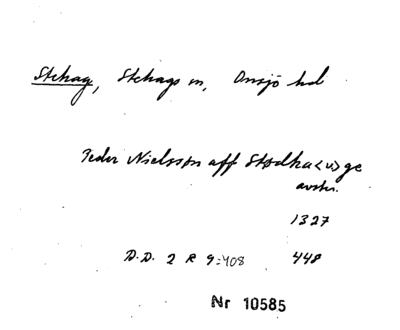 Stehag, Stehags sn, Onsjö hd
Peder Nielssøn aff Stødha<u>ge
avskr.
1327
D.D. 2 R 9:408 448
Nr 10585